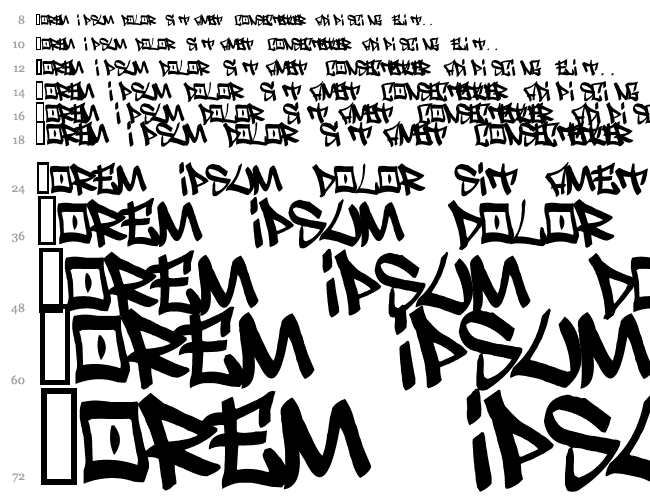 8 ▯orem ipsum dolor sit amet consectetuer adipiscing elit..
10 ▯orem ipsum dolor sit amet consectetuer adipiscing elit..
12 ▯orem ipsum dolor sit amet consectetuer adipiscing elit..
14 ▯orem ipsum dolor sit amet consectetuer adipiscing
16 ▯orem ipsum dolor sit amet consectetuer adipisc
18 ▯orem ipsum dolor sit amet consectetuer
24 ▯orem ipsum dolor sit amet
36 ▯orem ipsum dolor
48 ▯orem ipsum do
60 ▯orem ipsum
72 ▯orem ips